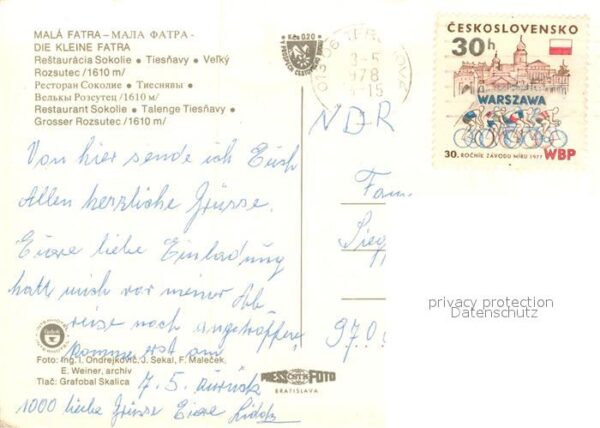 MALÁ FATRA – МАЛА ФАТРА -
DIE KLEINE FATRA
Reštaurácia Sokolie • Tiesňavy • Veľký
Rozsutec /1610 m/
Ресторан Соколие • Тиеснявы •
Велькы Розсутец /1610 м/
Restaurant Sokolie • Talenge Tiesňavy •
Grosser Rozsutec /1610 m/
Kčs 0,20
3-5
978
-15
ČESKOSLOVENSKO
30h
WARSZAWA
30. ROČNÍK ZÁVODU MÍRU 1977 WBP
NDR
Von hier sende ich Euch
Allen herzliche Grüsse.
Eure liebe Einladung
hatt mich vor meiner Ab
reise noch angetroffen,
komme erst am
7.5. zurück
1000 liebe Grüsse Eure
Fam
Sieg
970
privacy protection
Datenschutz
Foto: Ing. I. Ondrejkovič, J. Sekal, F. Maleček,
E. Weiner, archív
Tlač: Grafobal Skalica
PRESSFOTO
BRATISLAVA